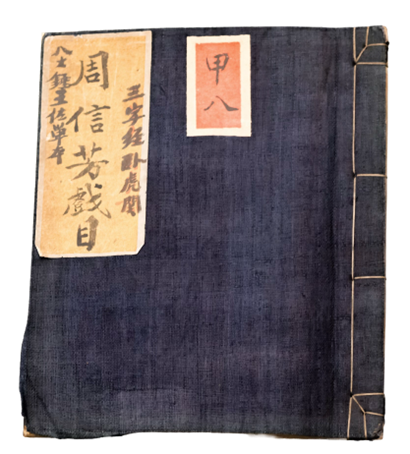 甲八
三字经卧虎関
周信芳戲目
八大錘王佐單本